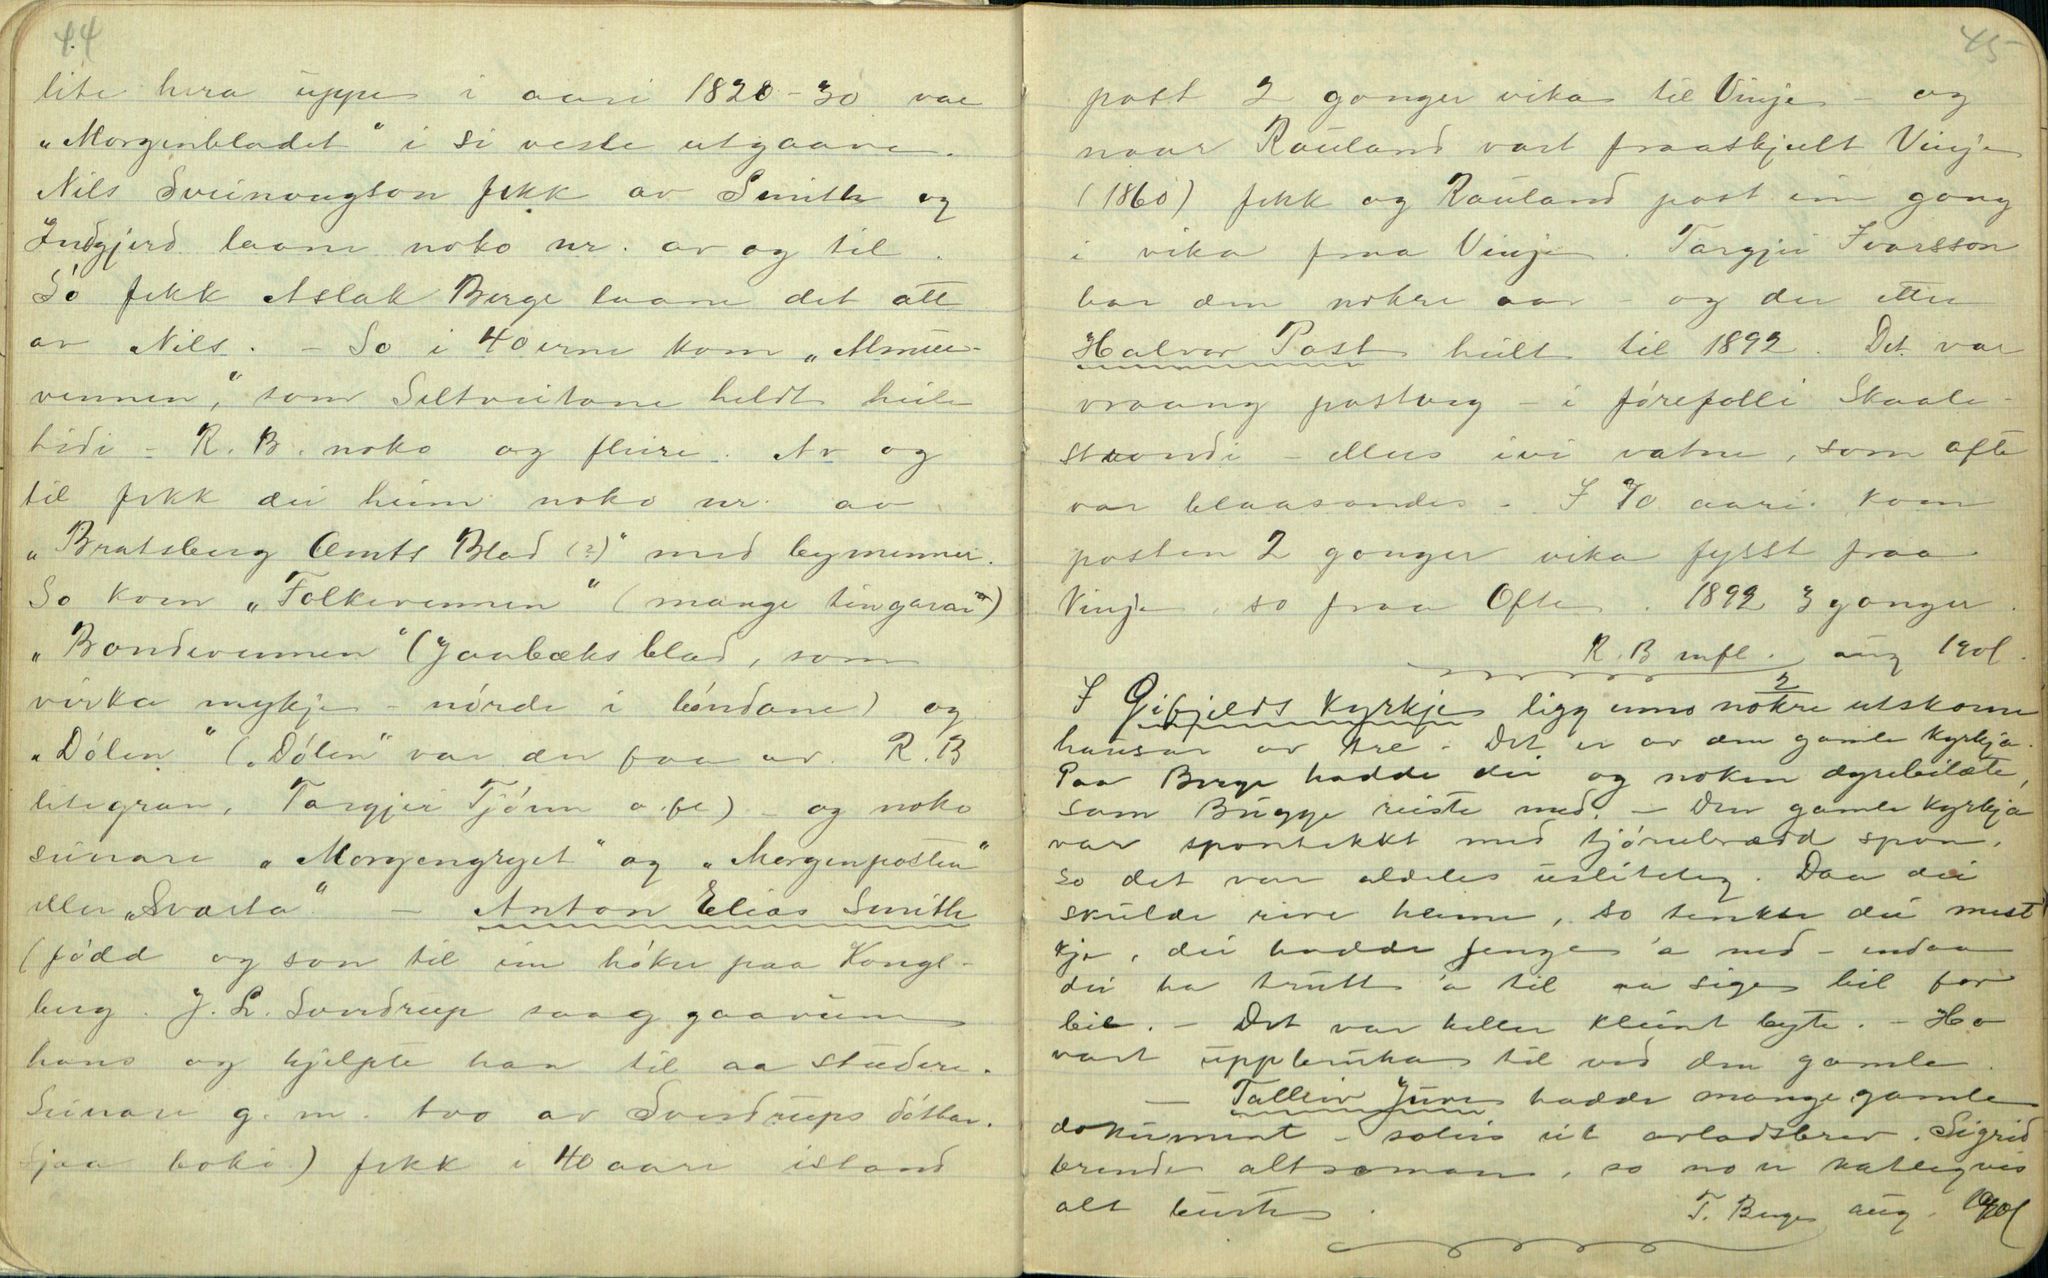 44
lite hera uppe i aari 1820-30 var
„Morgenbladet" i si vesle utgaave.
Nils Sveinungson fekk av Smith og
Indgjerd laane noko nr. av og til.
Só fekk Aslak Berge laane det att
av Nils. - So i 40 erne kom „Almue-
vennen", som Seltveitane heldt heile
tidi - R. B. noko og fleire. Av og
til fekk dei heim noko nr. av
„Bratsberg Amts Blad (?)" med bymenner.
So kom „Folkevennen" (mange tingarar)
„Bondevennen" (Jaabæks blad, som
virka mykje - nórde i bóndane) og
„Dólen" („Dólen" var der faa av. R. B
litegran, Targjei Tjónn o. fl) - og noko
seinare „Morgengryet" og „Morgenposten"
eller „Svarta" - Anton Elias Smith
(fódd og son til ein hóker paa Kongs-
berg. J. L. Sverdrup saag gaavune
hans og hjelpte han til aa studere.
Seinare g. m. tvo av Sverdrups dóttar.
Sjaa boki) fekk i 40 aari istand
45
post 2 gonger vika til Vinje - og
naar Rauland vart fraaskjelt Vinje
(1860) fekk og Rauland post ein gong
i vika fraa Vinje. Targjei Ivarsson
bar den nokre aar - og der etter
Halvor Post heilt til 1892. Det var
vraang postveg - i fórefalli Skaale-
strondi - elles ivi vatne, som ofte
var blaasandes - I 70 aari kom
posten 2 gonger vika fysst fraa
Vinje, so fraa Ofte. 1892 3 gonger.
R. B mfl. aug 1901.
I Gibjelds Kyrkje ligg enno nokre 2 utskorne
hausar av tre. Det er av den gamle Kyrkja.
Paa Berge hadde dei og noken dyrebilæte,
som Bugge reiste med. - Den gamle Kyrkja
var spontekkt med tjórebrædd spon,
so det var aldeles usliteleg. Daa dei
skulde rive henne, so tenkte dei mest
kje, dei hadde fenge 'a ned - endaa
dei ha trutt 'a til aa sige bil for
bil. - Det var heller kleint byte. - Ho
vart uppbruka til ved den gamle.
- Talleiv Juve hadde mange gamle
dokument - soleis eit avladsbrev. Sigrid
brende altsaman, so no er
alt burte. T. Berge aug. 1901